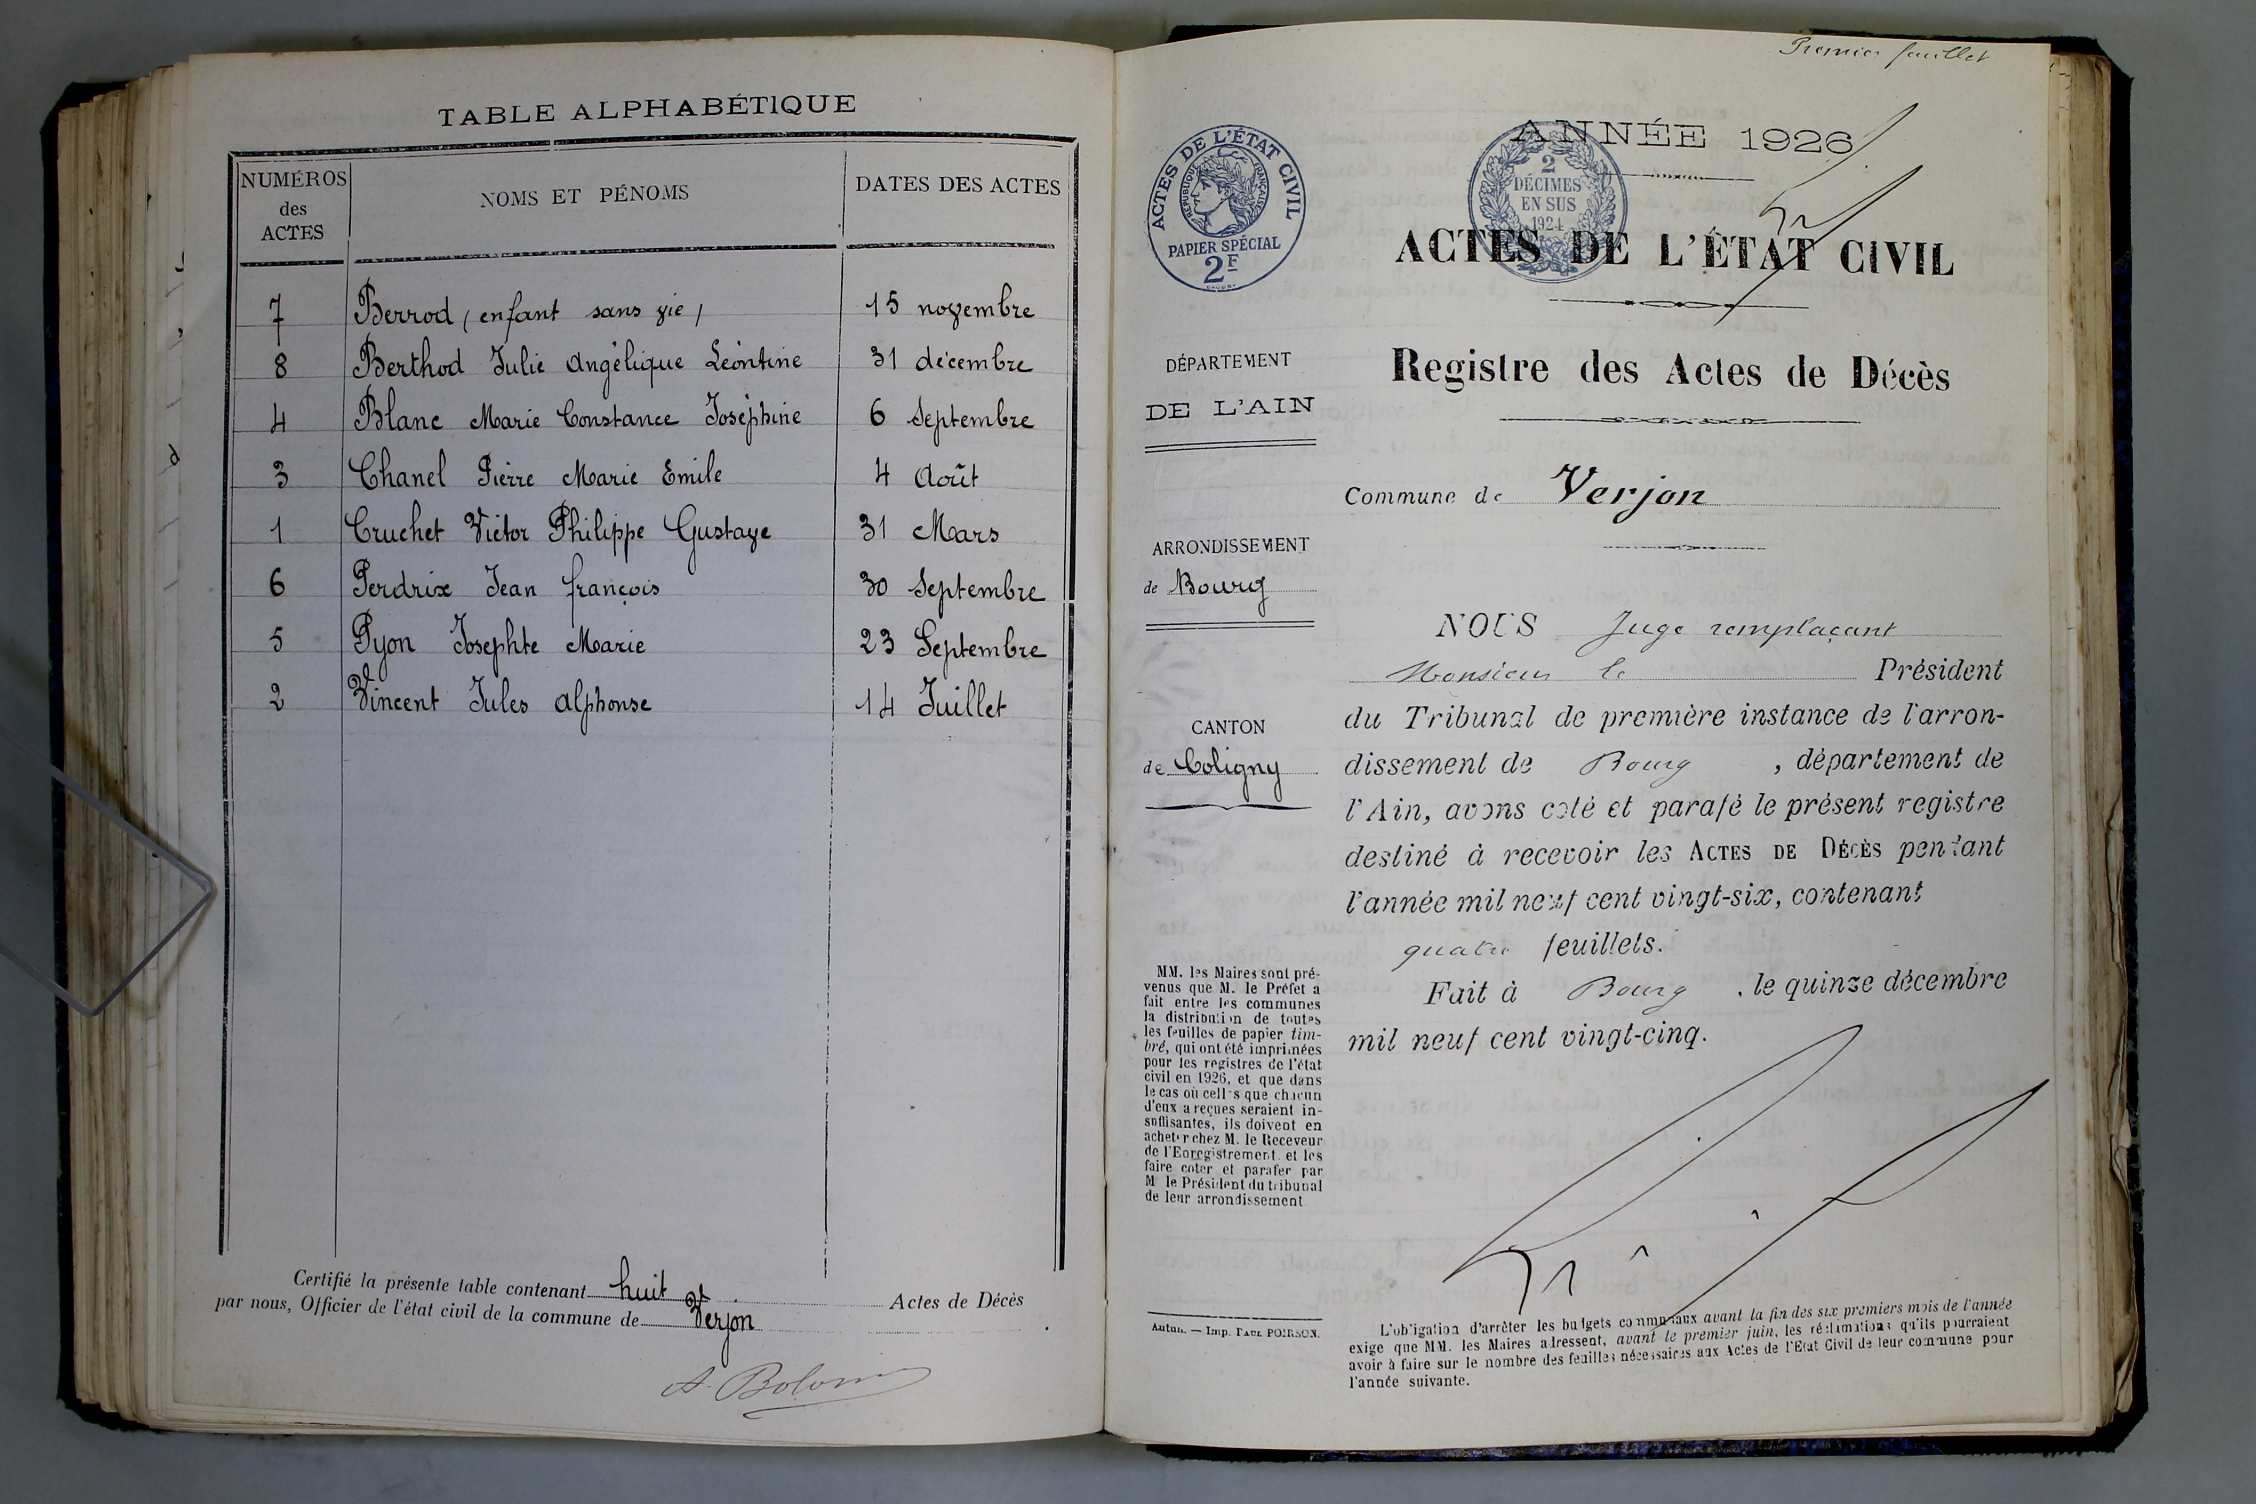 TABLE ALPHABÉTIQUE
NUMÉROS
des
ACTES
NOMS ET PÉNOMS
DATES DES ACTES
7 Berrod (enfant sans vie) 15 novembre
8 Berthod Julie Angélique Léontine 31 décembre
4 Blanc Marie Constance Joséphine 6 Septembre
3 Chanel Pierre Marie Emile 4 Août
1 Cruchet Victor Philippe Gustave 31 Mars
6 Perdrix Jean françois 30 Septembre
5 Pyon Josephte Marie 23 Septembre
2 Vincent Jules Alphonse 14 Juillet
Certifié la présente table contenant huit Actes de Décès
par nous, Officier de l'état civil de la commune de Verjon
Premier feuillet
ACTES DE L'ÉTAT CIVIL
RÉPUBLIQUE FRANÇAISE
PAPIER SPÉCIAL
2F
ANNÉE 1926
2
DÉCIMES
EN SUS
1924
ACTES DE L'ÉTAT CIVIL
Registre des Actes de Décès
DÉPARTEMENT
DE L'AIN
ARRONDISSEMENT
de Bourg
CANTON
de Coligny
MM. les Maires sont pré-
venus que M. le Préfet a
fait entre les communes
la distribution de toutes
les feuilles de papier tim-
bré, qui ont été imprimées
pour les registres de l'état
civil en 1926, et que dans
le cas où celles que chacun
d'eux a reçues seraient in-
suffisantes, ils doivent en
acheter chez M. le Receveur
de l'Enregistrement et les
faire coter et parafer par
M le Président du tribunal
de leur arrondissement
Autun. — Imp. PAUL POIRSON.
Commune de Verjon
NOUS Juge remplaçant
Monsieur le Président
du Tribunal de première instance de l'arron-
dissement de Bourg, département de
l'Ain, avons coté et parafé le présent registre
destiné à recevoir les ACTES DE DÉCÈS pendant
l'année mil neuf cent vingt-six, contenant
quatre feuillets.
Fait à Bourg, le quinze décembre
mil neuf cent vingt-cinq.
L'obligation d'arrêter les budgets communaux avant la fin des six premiers mois de l'année
exige que MM. les Maires adressent, avant le premier juin, les réclamations qu'ils pourraient
avoir à faire sur le nombre des feuilles nécessaires aux Actes de l'Etat Civil de leur commune pour
l'année suivante.